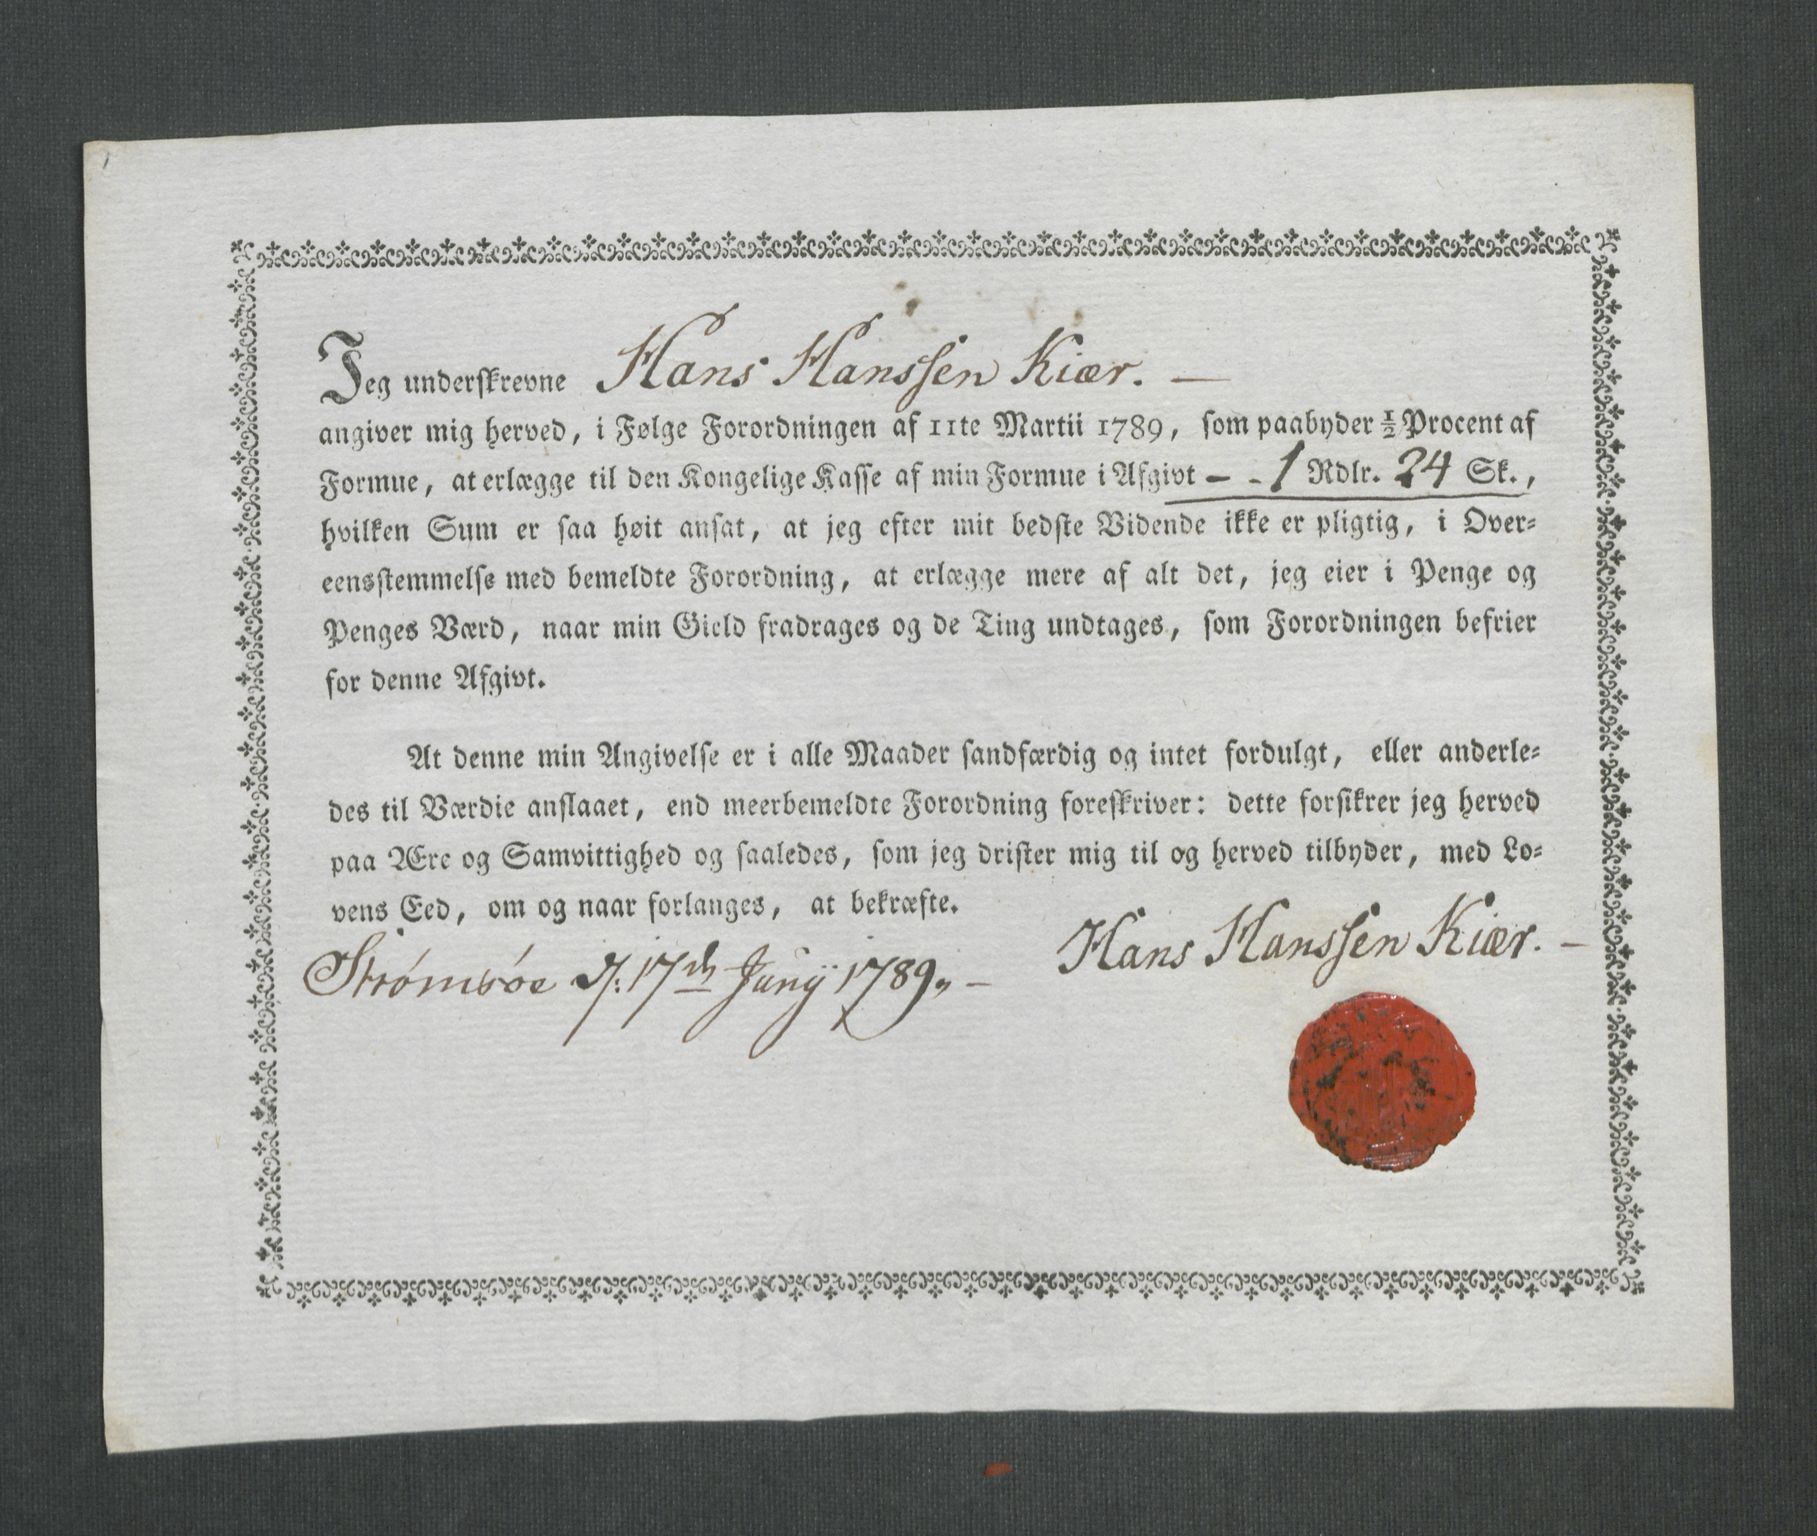 Jeg underskrevne Hans Hanssen Kiær. —
angiver mig herved, i Følge Forordningen af 11te Martii 1789, som paabyder ½ Procent af
Formue, at erlægge til den Kongelige Kasse af min Formue i Afgivt — - 1 Rdlr. 24 Sk.,
hvilken Sum er saa høit ansat, at jeg efter mit bedste Vidende ikke er pligtig, i Over-
eensstemmelse med bemeldte Forordning, at erlægge mere af alt det, jeg eier i Penge og
Penges Værd, naar min Gield fradrages og de Ting undtages, som Forordningen befrier
for denne Afgivt.
At denne min Angivelse er i alle Maader sandfærdig og intet fordulgt, eller anderle-
des til Værdie anslaaet, end meerbemeldte Forordning foreskriver: dette forsikrer jeg herved
paa Ære og Samvittighed og saaledes, som jeg drister mig til og herved tilbyder, med Lo-
vens Eed, om og naar forlanges, at bekræfte.
Hans Hanssen Kiær. —
Strømsøe d: 17de Junÿ 1789. —